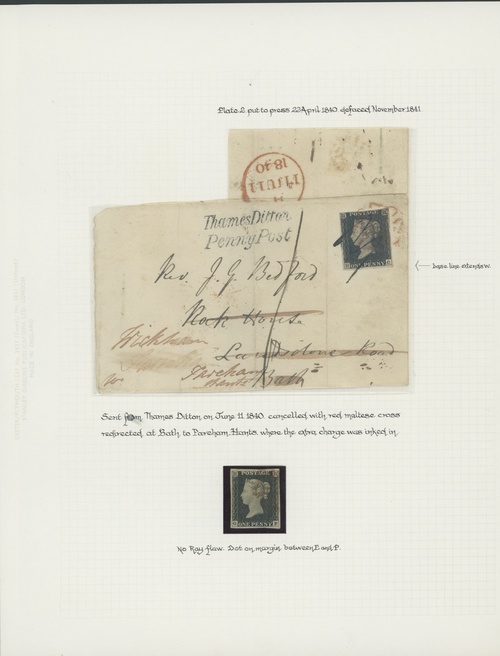 Plate 2. put to press 22 April 1840 defaced November 1841
11 JU 11
1840
Thames Ditton
Penny Post
POSTAGE
ONE PENNY
Base line extends w.
Rev. J. G. Bedford
Rock House
Lansdowne Road
Wickham
Fareham
Hants
Bath
Sent from Thames Ditton on June 11. 1840. cancelled with red maltese cross
redirected at Bath to Fareham, Hants. where the extra charge was inked in.
POSTAGE
ONE PENNY
No Ray flaw. Dot on margin between E and P.